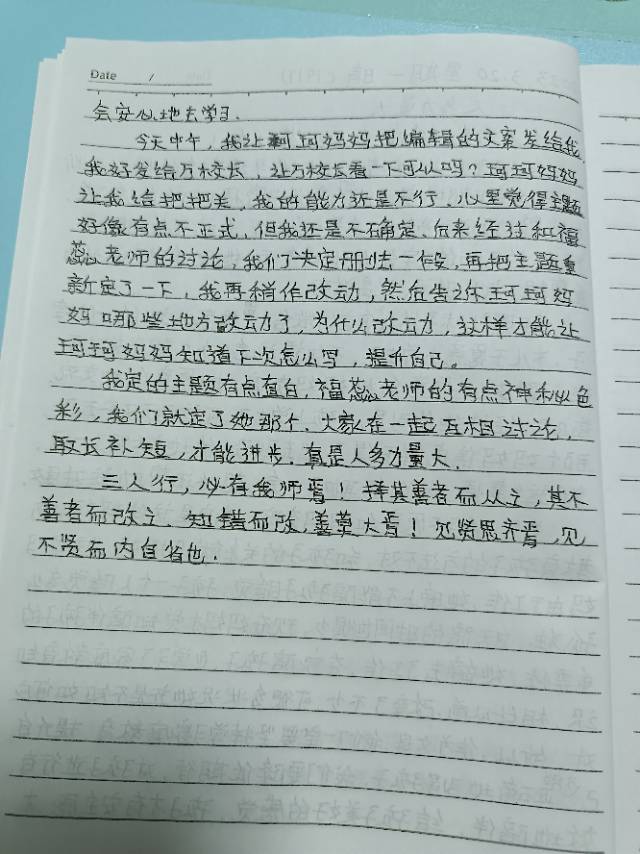 Date /
会安心地去学习.
今天中午，我让珂珂妈妈把编辑的文案发给我
我好发给万校长，让万校长看一下可以吗？珂珂妈妈
让我给把把关，我的能力还是不行，心里觉得主题
好像有点不正式，但我还是不确定，后来经过和福
蕊老师的讨论，我们决定删去一段，再把主题重
新定了一下，我再稍作改动，然后告诉珂珂妈
妈哪些地方改动了，为什么改动，这样才能让
珂珂妈妈知道下次怎么写，提升自己。
我定的主题有点直白，福蕊老师的有点神秘色
彩，我们就定了她那个．大家在一起互相讨论，
取长补短，才能进步．真是人多力量大．
三人行，必有我师焉！择其善者而从之，其不
善者而改之．知错而改，善莫大焉！见贤思齐焉，见
不贤而内自省也．